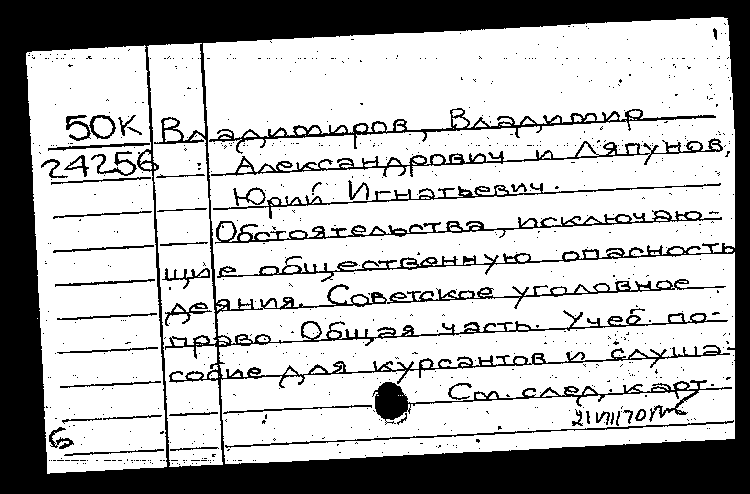 50К Владимиров, Владимир
24256 Александрович и Ляпунов,
Юрий Игнатьевич.
Обстоятельства, исключаю-
щие общественную опасность
деяния. Советское уголовное
право. Общая часть. Учеб. по-
собие для курсантов и слуша-
См. след. карт.
21 VIII 70
6